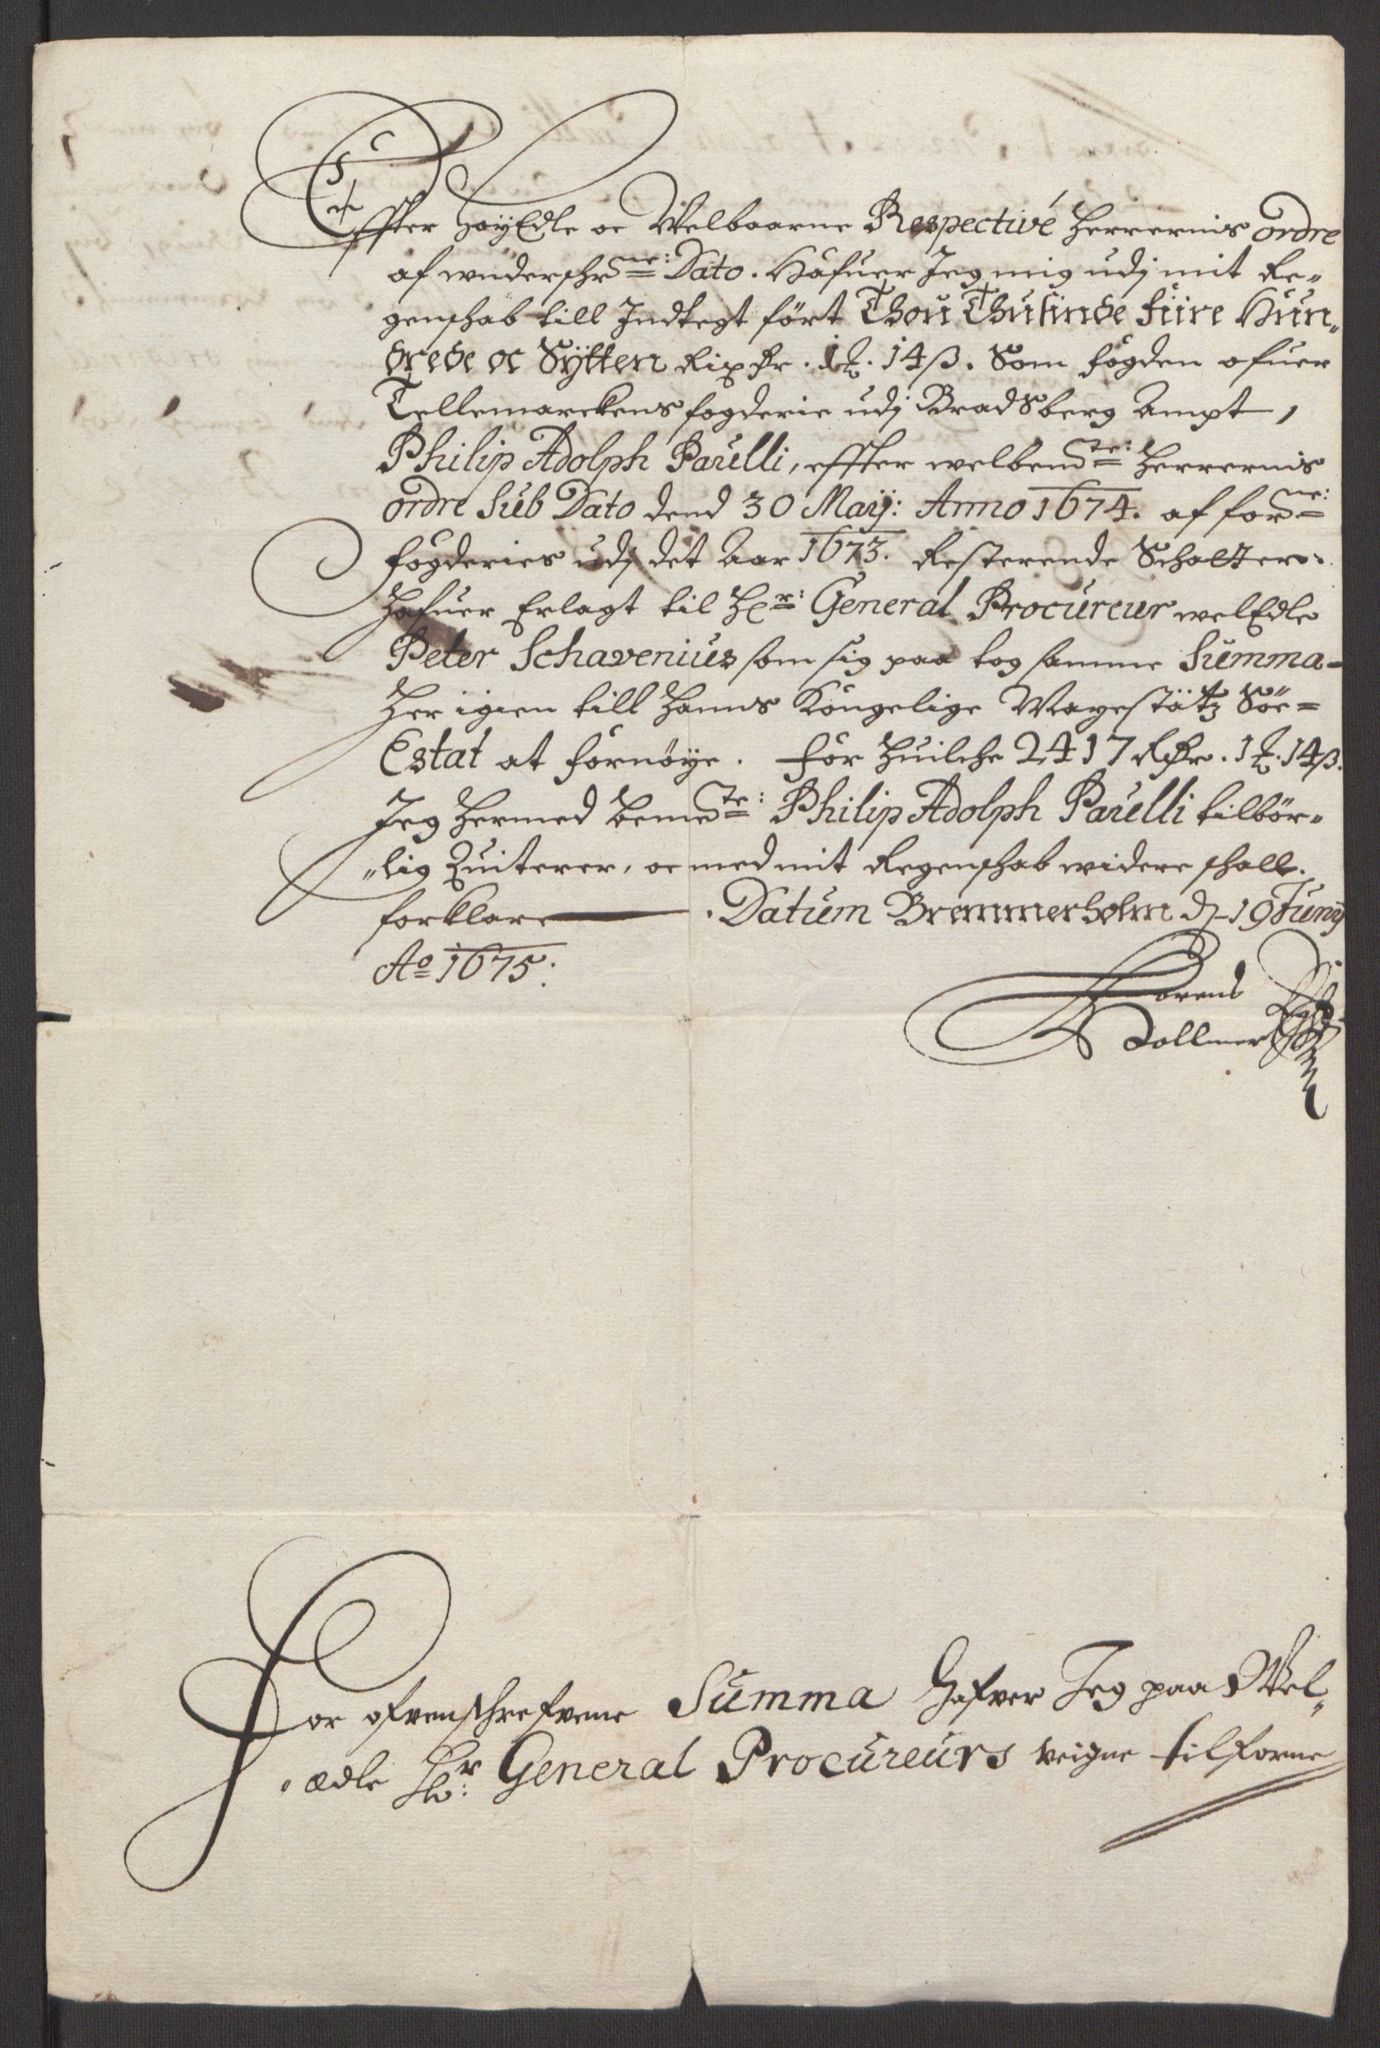 Effter HøyEdle oc Welbaarne Respectivé Herrernis ordre
af wnderschr:ne Dato. Hafuer Jeg mig udj mit Re-
genschab till Indtegt ført Thou Thusinde fiire Hun-
drede oc Sÿtten Rixdr. 1 ₰. 14 ß. Som fogden ofuer
Tellemarckens fogderie udj BradSberg Ampt,
Philip Adolph Parelli, effter welbemte: Herrernis
ordre Sub Dato dend 30 Maÿ: Anno 1674. af forne:
fogderies udj det Aar 1673. Resterende Schatter.
Hafuer Erlagt til Hr: General Procureur welEdle
Peter Schavenius som sig paa tog samme Summa
Her igien till Hanns Kongelige Mayestätz Söe-
Estat at fornøye. for Huilche 2417 Rdr. 1 ₰. 14 ß.
Jeg Hermed bemte: Philip Adolph Parelli tilbör-
lig Quiterer, oc med mit Regenschab widere schall
forklare. Datum Bremmerholm d. 19 Junÿ
Ao 1675.
Lorens
Tollner
For ofvenschrefvene Summa Hafver Jeg paa Wel-
ædle Hr: General Procureurs veigne